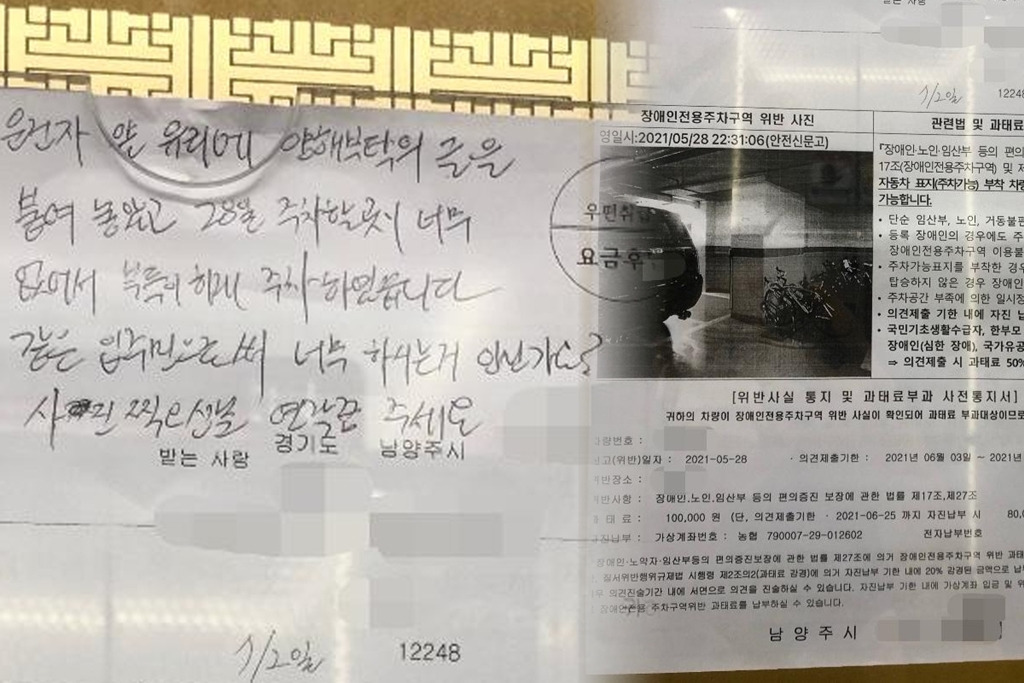 운전자 앞 유리에 양해부탁의 글을
붙여 놓았고 28일 주차할곳이 너무
없어서 부득이하게 주차하였습니다
같은 입주민으로써 너무 하시는거 안닌가요?
사진 찍으신날 연락끔 주세요
받는 사람 경기도 남양주시
1/2일 12248
1/2일 12248
장애인전용주차구역 위반 사진
영일시:2021/05/28 22:31:06(안전신문고)
우편취
요금후
관련법 및 과태료
『장애인·노인·임산부 등의 편의
17조(장애인전용주차구역) 및 제
자동차 표지(주차가능) 부착 차량
가능합니다.
• 단순 임산부, 노인, 거동불편
• 등록 장애인의 경우에도 주
장애인전용주차구역 이용불
• 주차가능표지를 부착한 경우
탑승하지 않은 경우 장애인
• 주차공간 부족에 의한 일시정
• 의견제출 기한 내에 자진 납
• 국민기초생활수급자, 한부모
장애인(심한 장애), 국가유공
⇒ 의견제출 시 과태료 50%
[위반사실 통지 및 과태료부과 사전통지서]
귀하의 차량이 장애인전용주차구역 위반 사실이 확인되어 과태료 부과대상이므로
차량번호 :
신고(위반)일자 : 2021-05-28 · 의견제출기한 : 2021년 06월 03일 ~ 2021년
위반장소 :
위반사항 : 장애인.노인.임산부 등의 편의증진 보장에 관한 법률 제17조,제27조
과 태 료 : 100,000 원 (단, 의견제출기한 · 2021-06-25 까지 자진납부 시 80,0
자진납부 : 가상계좌번호 : 농협 790007-29-012602 전자납부번호
장애인·노약자·임산부등의 편의증진보장에 관한 법률 제27조에 의거 장애인전용주차구역 위반 과태
질서위반행위규제법 시행령 제2조의2(과태료 감경)에 의거 자진납부 기한 내에 20% 감경된 금액으로 납부
우 의견진술기간 내에 서면으로 의견을 진술하실 수 있습니다. 자진납부 기한 내에 가상계좌 입금 및 위
장애인전용 주차구역위반 과태료를 납부하실 수 있습니다.
남 양 주 시